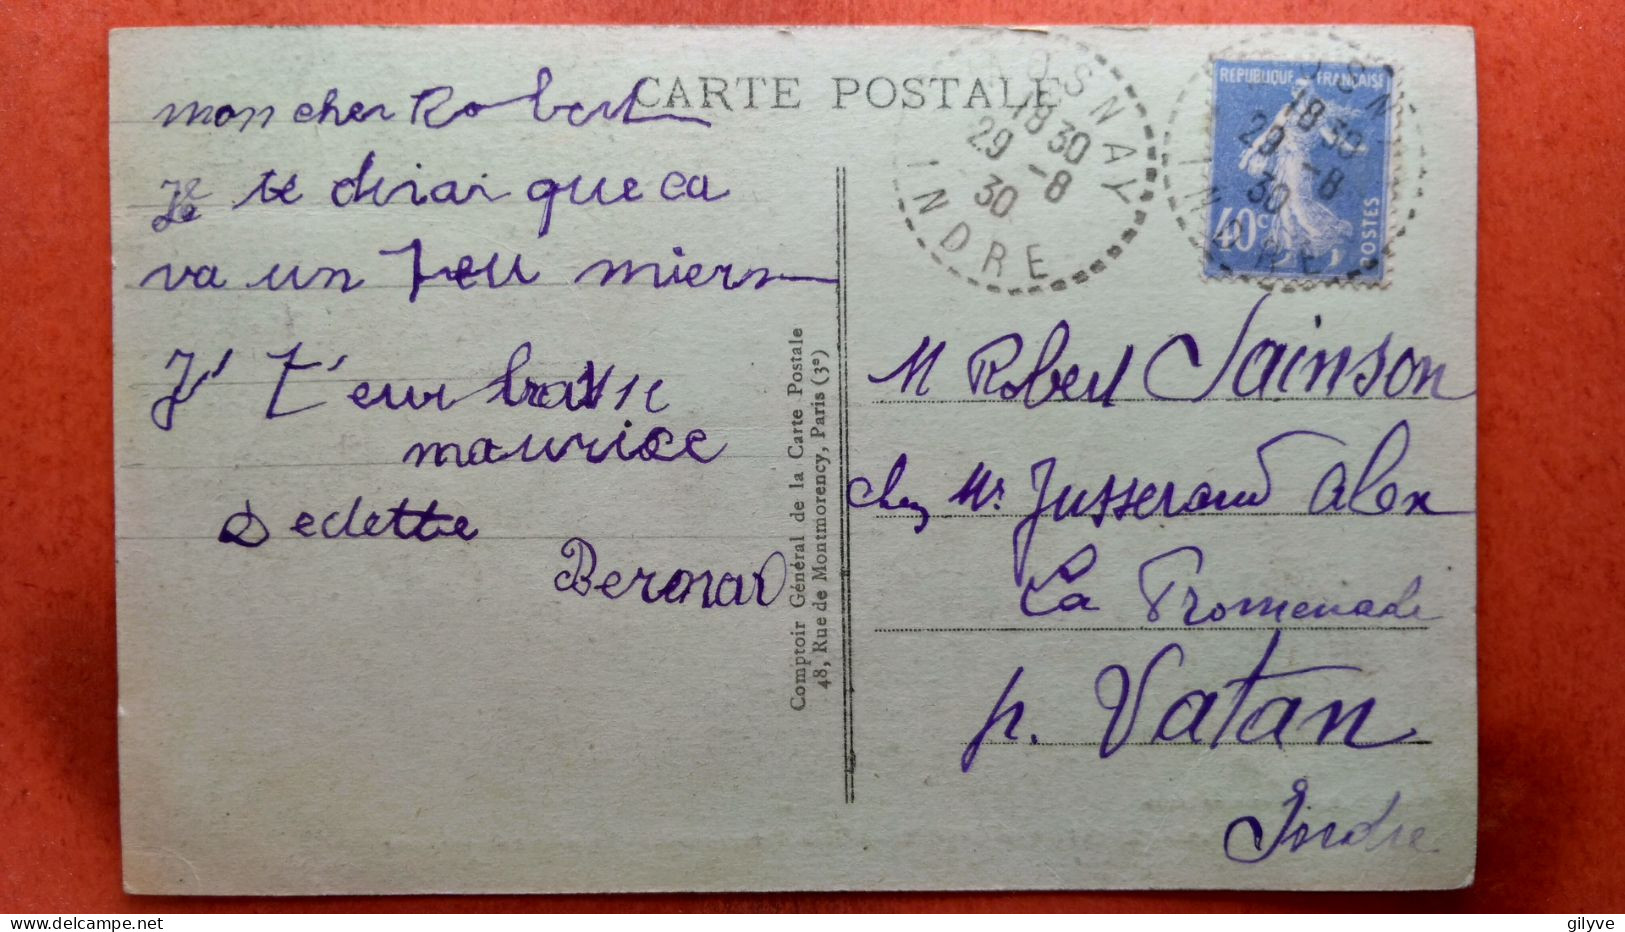 CARTE POSTALE
mon cher Robert
Je te dirai que ca
va un peu miers
J' t'embrasse
maurice
Dedette
Bernard
Comptoir Général de la Carte Postale
48, Rue de Montmorency, Paris (3e)
ROSNAY
18 30
29 - 8
30
INDRE
REPUBLIQUE FRANÇAISE
18 30
29 - 8
30
INDRE
40c
POSTES
M Robert Sainson
chez Mr. Jusserand Alex
La Promenade
p. Vatan
Indre
gilyve